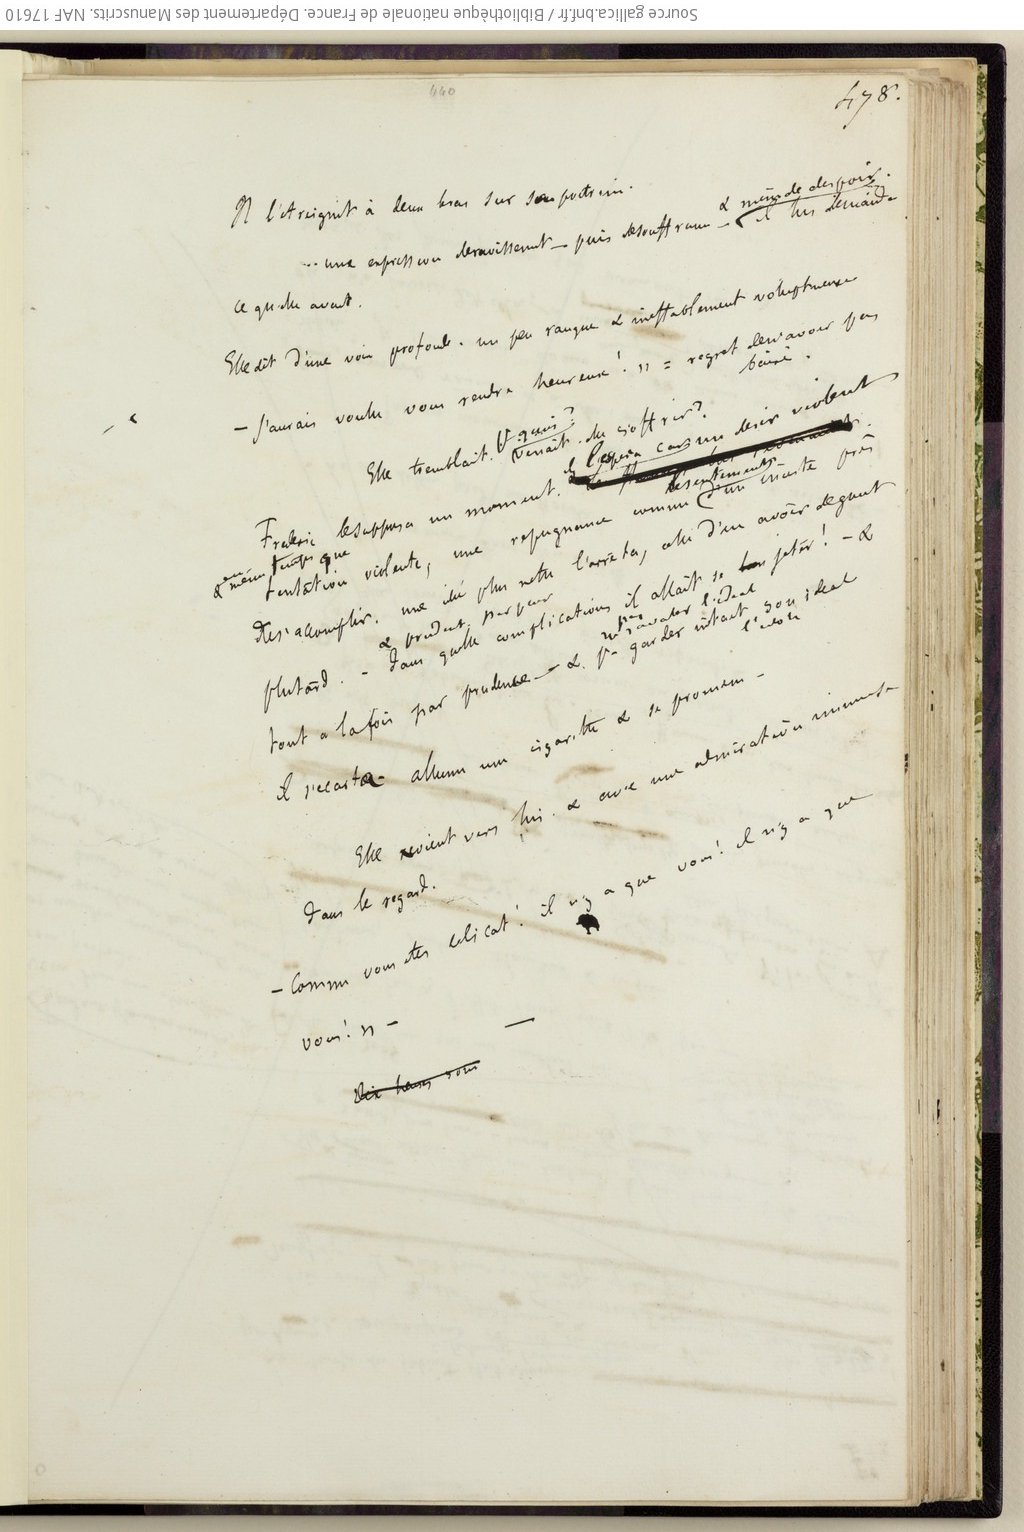 Source gallica.bnf.fr / Bibliothèque nationale de France. Département des Manuscrits. NAF 17610
440
478.
Il l'étreignit à deux bras sur son poitrine.
& même de despoir.
... une expression de ravissement – puis de souffrance – il lui demanda
ce qu'elle avait.
Elle dit d'une voix profonde. un peu rauque & ineffablement voluptueuse
– J'aurais voulu vous rendre heureux! » = regret de n'avoir pas
baisé.
Elle tremblait. Venait-elle s'offrir?
& l'espoir un desir violent
Frederic le supposa un moment.
& en même temps que
tentation violente, une repugnance comme d'un inceste près
de s'accomplir. une idée plus nette l'arrêta, celle d'en avoir degout
& prudent, par peur
plus tard. – dans quelle complication il allait se jeter! – &
ne pas l'ideal
tout a la fois par prudence – & pr garder intact son ideal
l'idole
il s'ecarta alluma une cigarette & se promena –
Elle revient vers lui. & avec une admiration immense
dans le regard.
– Comme vous etes delicat! il n'y a que vous! il n'y a que
vous! » –
Dix heures sonn